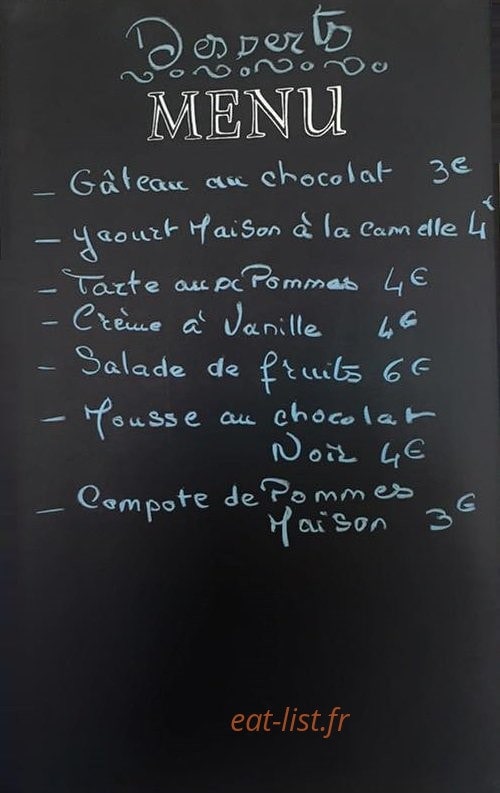 Desserts
MENU
- Gâteau au chocolat 3€
- Yaourt Maison à la cannelle 4€
- Tarte aux Pommes 4€
- Crème à Vanille 4€
- Salade de fruits 6€
- Mousse au chocolat
Noir 4€
- Compote de Pommes
Maison 3€
eat-list.fr